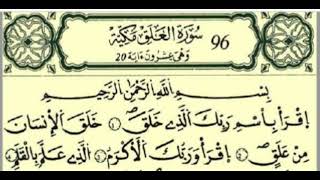 سُورَةُ الْعَلَقِ مَكِّيَّة 96
وَهْيَ عِشْرُونَ ءَايَة 20
بِسْمِ اللَّهِ الرَّحْمَٰنِ الرَّحِيمِ
اِقْرَأْ بِاسْمِ رَبِّكَ الَّذِي خَلَقَ ① خَلَقَ الْإِنسَانَ
مِنْ عَلَقٍ ② اِقْرَأْ وَرَبُّكَ الْأَكْرَمُ ③ الَّذِي عَلَّمَ بِالْقَلَمِ